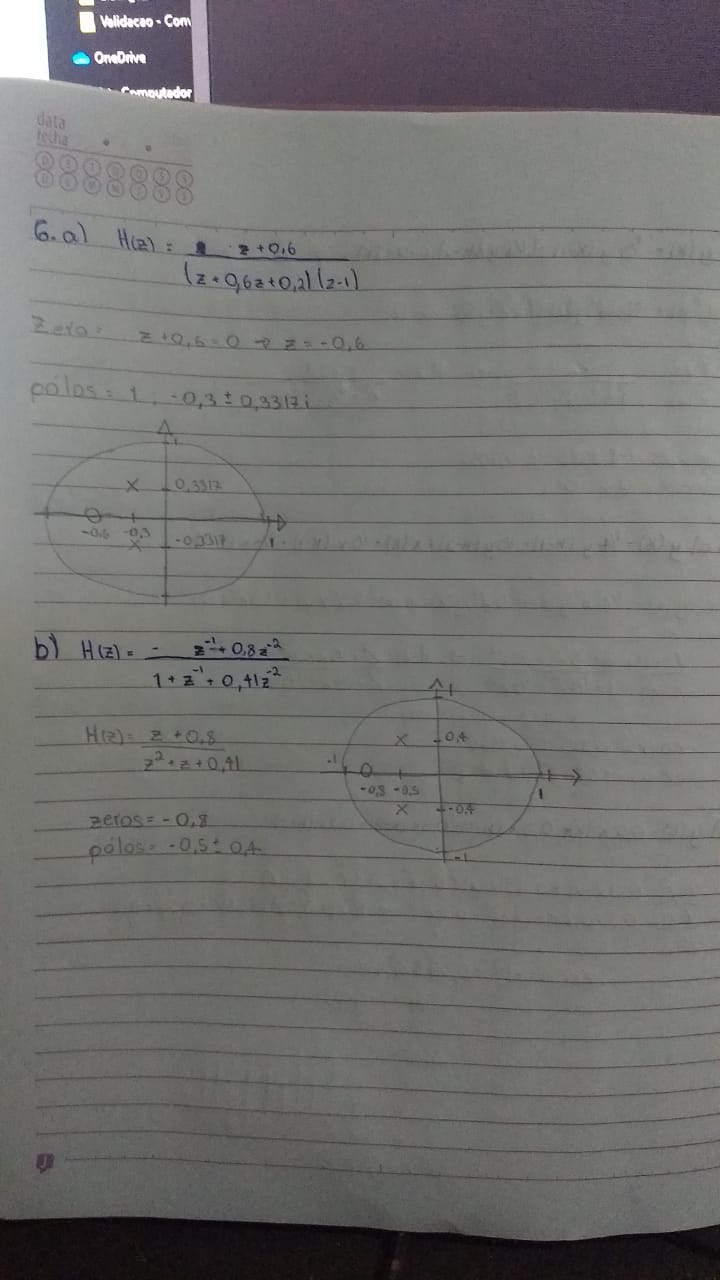 Validacao - Com
OneDrive
Computador
data
fecha
6.a) H(z) = z+0,6
(z+0,6z+0,2)(z-1)
Zero = z+0,6=0 → z=-0,6
pólos = 1, -0,3 ± 0,3317i
1
0,3317
-0,6 -0,3
-0,3317 1
b) H(z) = - z⁻¹+0,8z⁻²
1+z⁻¹+0,41z⁻²
H(z)= z+0,8
z²+z+0,41
zeros = -0,8
pólos = -0,5 ± 0,4
1
0,4
-1
-0,8 -0,5
1
-0,4
-1